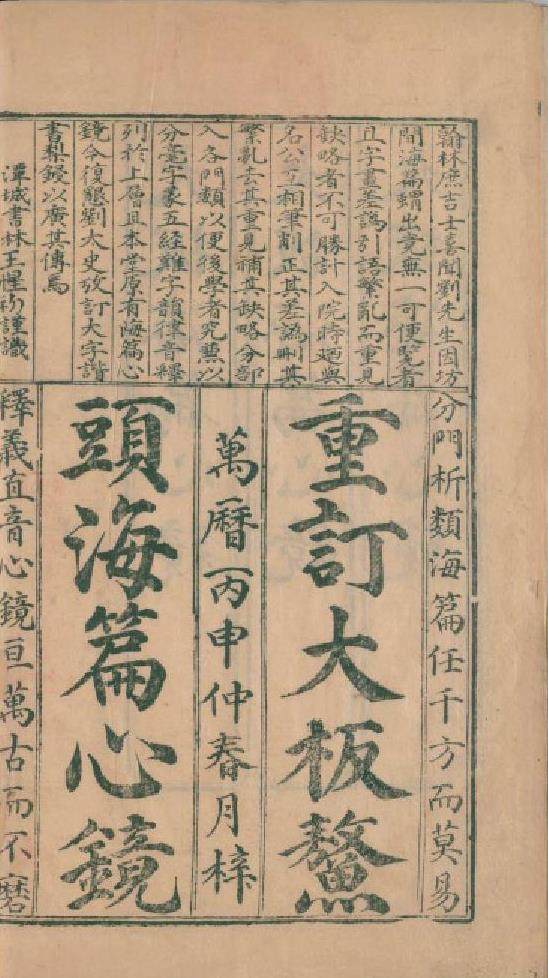 翰林庶吉士喜聞劉先生因坊
間海篇蝟出竟無一可便覽者
且字畫差譌引語繁亂而重見
缺略者不可勝計入院時迺與
名公互相筆削正其差譌刪其
繁亂去其重見補其缺略分部
入各門類以便後學者究焉以
分毫字義五經難字韻律音釋
列於上層且本堂原有海篇心
鏡今復懇劉太史攷訂大字諧
書梨鋟以廣其傳焉
潭城書林王惺初謹識
分門析類海篇任千方而莫易
重訂大板鰲
萬曆丙申仲春月梓
頭海篇心鏡
釋義直音心鏡亘萬古而不磨